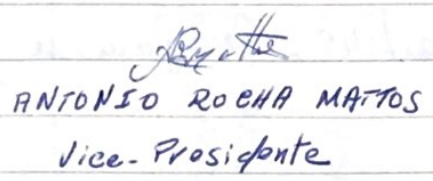 ANTONIO ROCHA MATTOS
Vice-Presidente